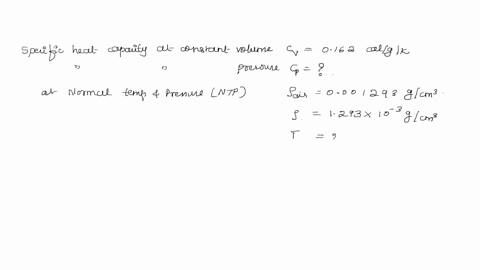 Specific heat capacity at constant volume Cv = 0.162 cal/g/k
" " pressure Cp = ?
at Normal temp & Pressure (NTP) ρair = 0.001293 g/cm³.
ρ = 1.293 × 10⁻³ g/cm³
T =